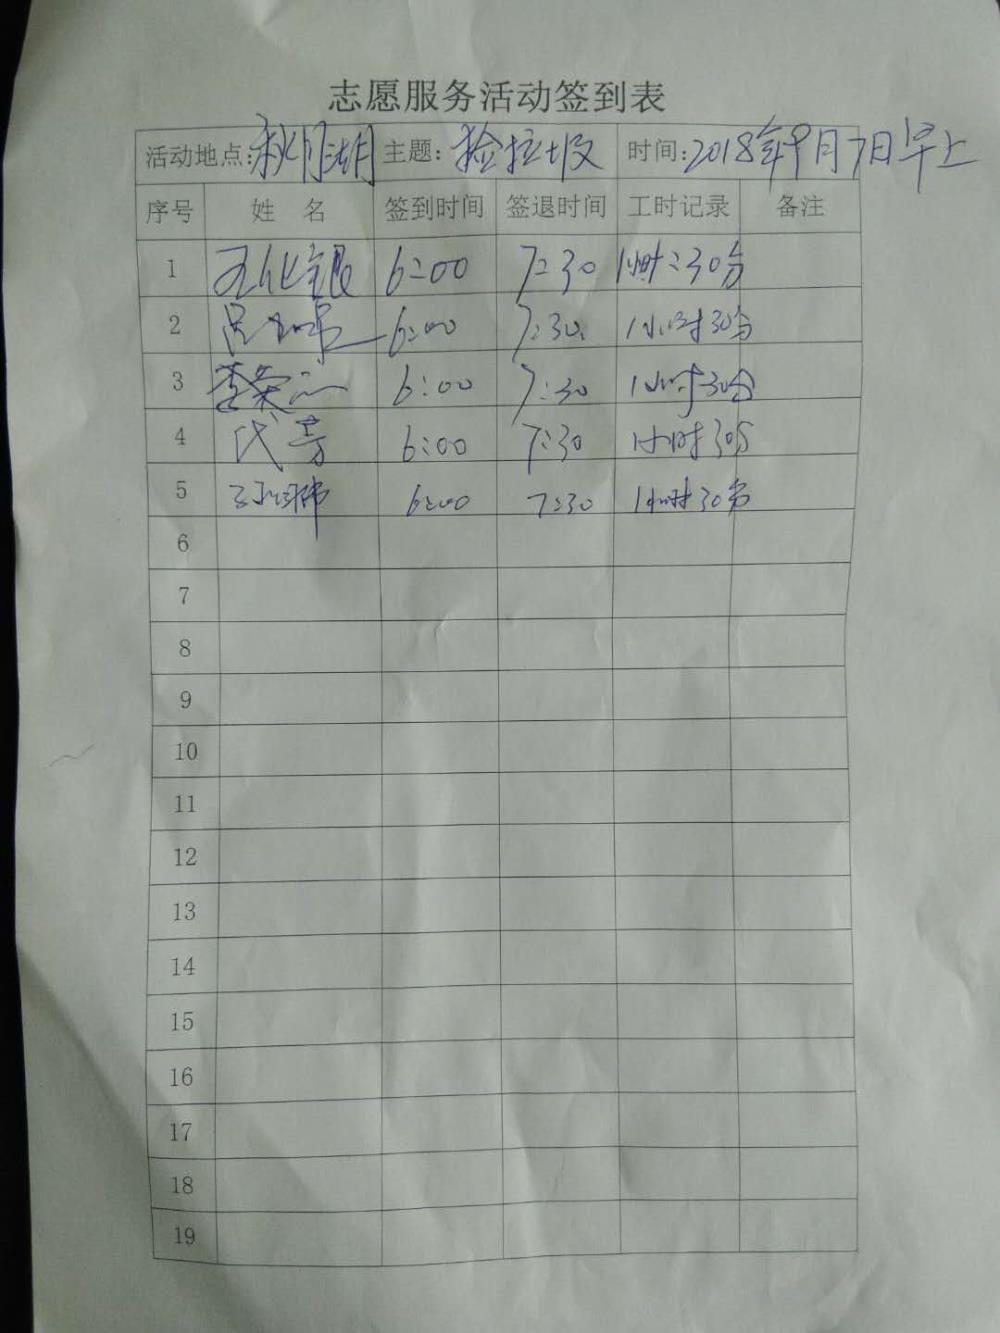 志愿服务活动签到表
活动地点:秋月湖 主题:捡垃圾 时间:2018年9月7日早上
序号 姓 名 签到时间 签退时间 工时记录 备注
1 6:00 7:30 1小时:30分
2 6:00 7:30 1小时30分
3 6:00 7:30 1小时30分
4 代芳 6:00 7:30 1小时30分
5 6:00 7:30 1小时30分
6
7
8
9
10
11
12
13
14
15
16
17
18
19